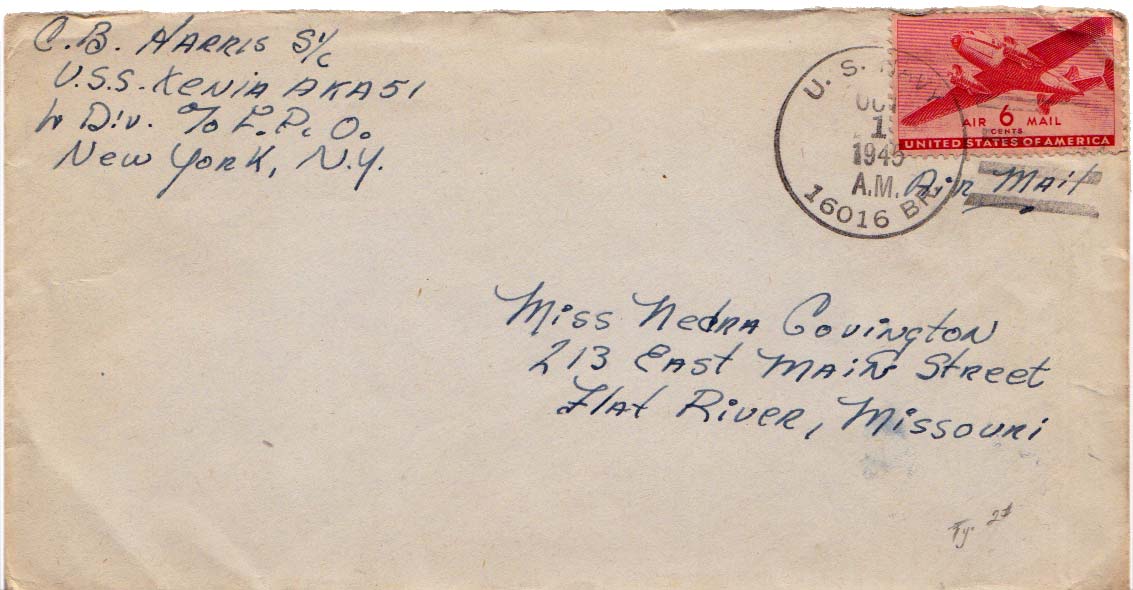 C.B. Harris S1/c
U.S.S. Xenia AKA51
4 Div. c/o F.P.O.
New York, N.Y.
U. S. NAVY
1945
A.M.
16016 BR.
AIR 6 MAIL
CENTS
UNITED STATES OF AMERICA
Air Mail
Miss Nedra Covington
213 East Main Street
Flat River, Missouri